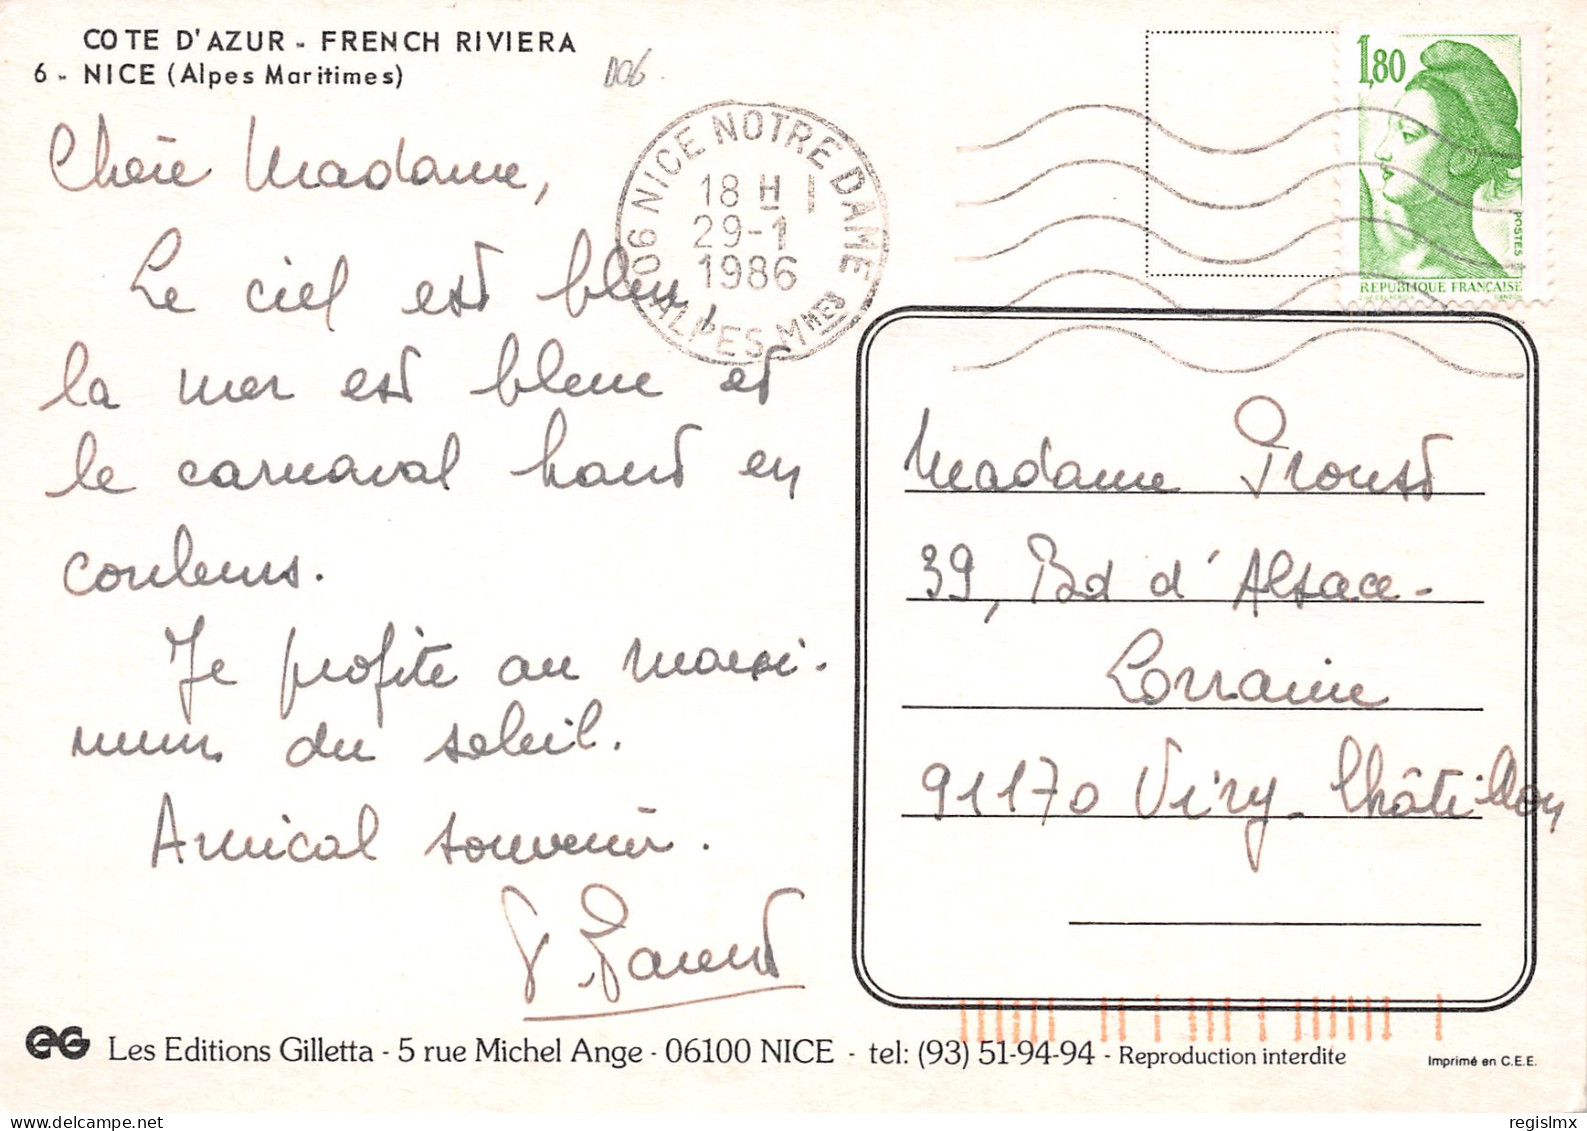 COTE D'AZUR - FRENCH RIVIERA
6 - NICE (Alpes Maritimes)
D06
Chère Madame,
Le ciel est bleu,
la mer est bleue et
le carnaval haut en
couleurs.
Je profite au maxi-
mum du soleil.
Amical souvenir.
06 NICE NOTRE DAME
18 H
29-1
1986
ALPES MMES
1,80
POSTES
REPUBLIQUE FRANÇAISE
Madame Proust
39, Bd d'Alsace-
Lorraine
91170 Viry-Châtillon
EG Les Editions Gilletta - 5 rue Michel Ange - 06100 NICE - tel: (93) 51-94-94 - Reproduction interdite
Imprimé en C.E.E.
regislmx